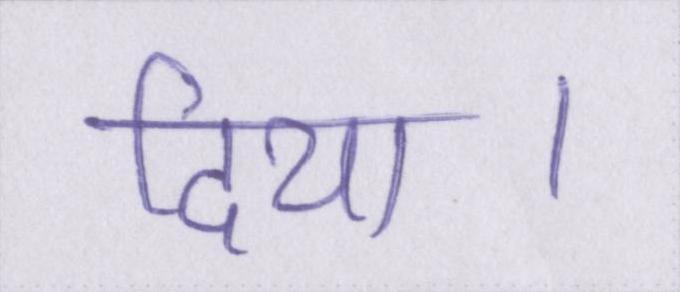 दिया ।